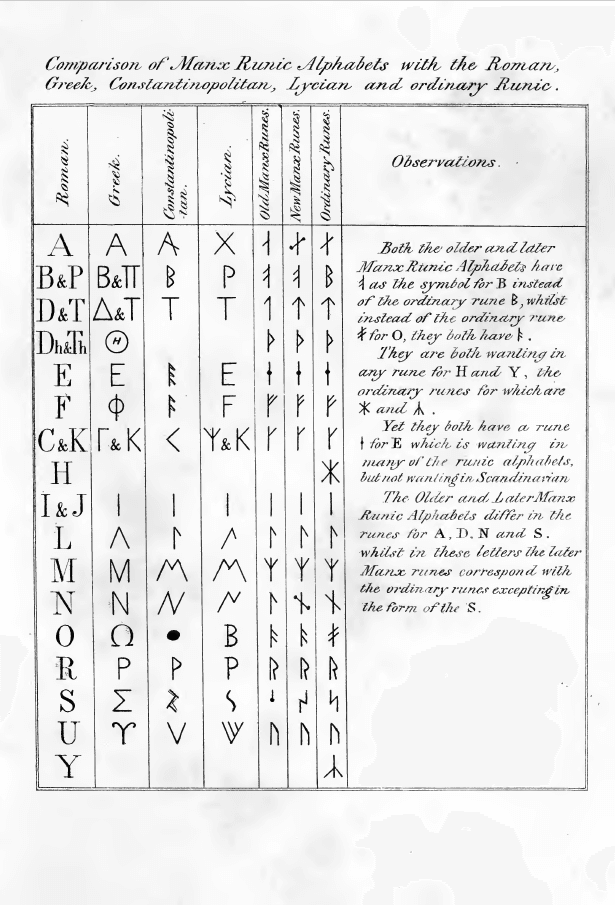 Comparison of Manx Runic Alphabets with the Roman,
Greek, Constantinopolitan, Lycian and ordinary Runic.
Roman. Greek. Constantinopoli-tan. Lycian. Old Manx Runes. New Manx Runes. Ordinary Runes. Observations.
A Α A X ᛆ ᛅ ᛆ
B&P Β&Π B P ᛒ
D&T Δ&Τ T T ᛐ ᛏ ᛏ
Dh&Th Θ ᚦ ᚦ ᚦ
E Ε E ᚽ ᚽ ᚽ
F Φ F ᚠ ᚠ ᚠ
C&K Γ&Κ < &K ᚴ ᚴ ᚴ
H ᚼ
I&J Ι I I ᛁ ᛁ ᛁ
L Λ ᛚ Λ ᛚ ᛚ ᛚ
M Μ M M ᛘ ᛘ ᛘ
N Ν N ᚿ ᚾ
O Ω ● B ᚭ
R Ρ P P ᚱ ᚱ ᚱ
S Σ ᛋ
U ϒ V W ᚢ ᚢ ᚢ
Y ᛦ
Both the older and later
Manx Runic Alphabets have
as the symbol for B instead
of the ordinary rune ᛒ, whilst
instead of the ordinary rune
for O, they both have .
They are both wanting in
any rune for H and Y, the
ordinary runes for which are
ᚼ and ᛦ.
Yet they both have a rune
ᚽ for E which is wanting in
many of the runic alphabets,
but not wanting in Scandinavian
The Older and Later Manx
Runic Alphabets differ in the
runes for A, D. N and S.
whilst in these letters the later
Manx runes correspond with
the ordinary runes excepting in
the form of the S.